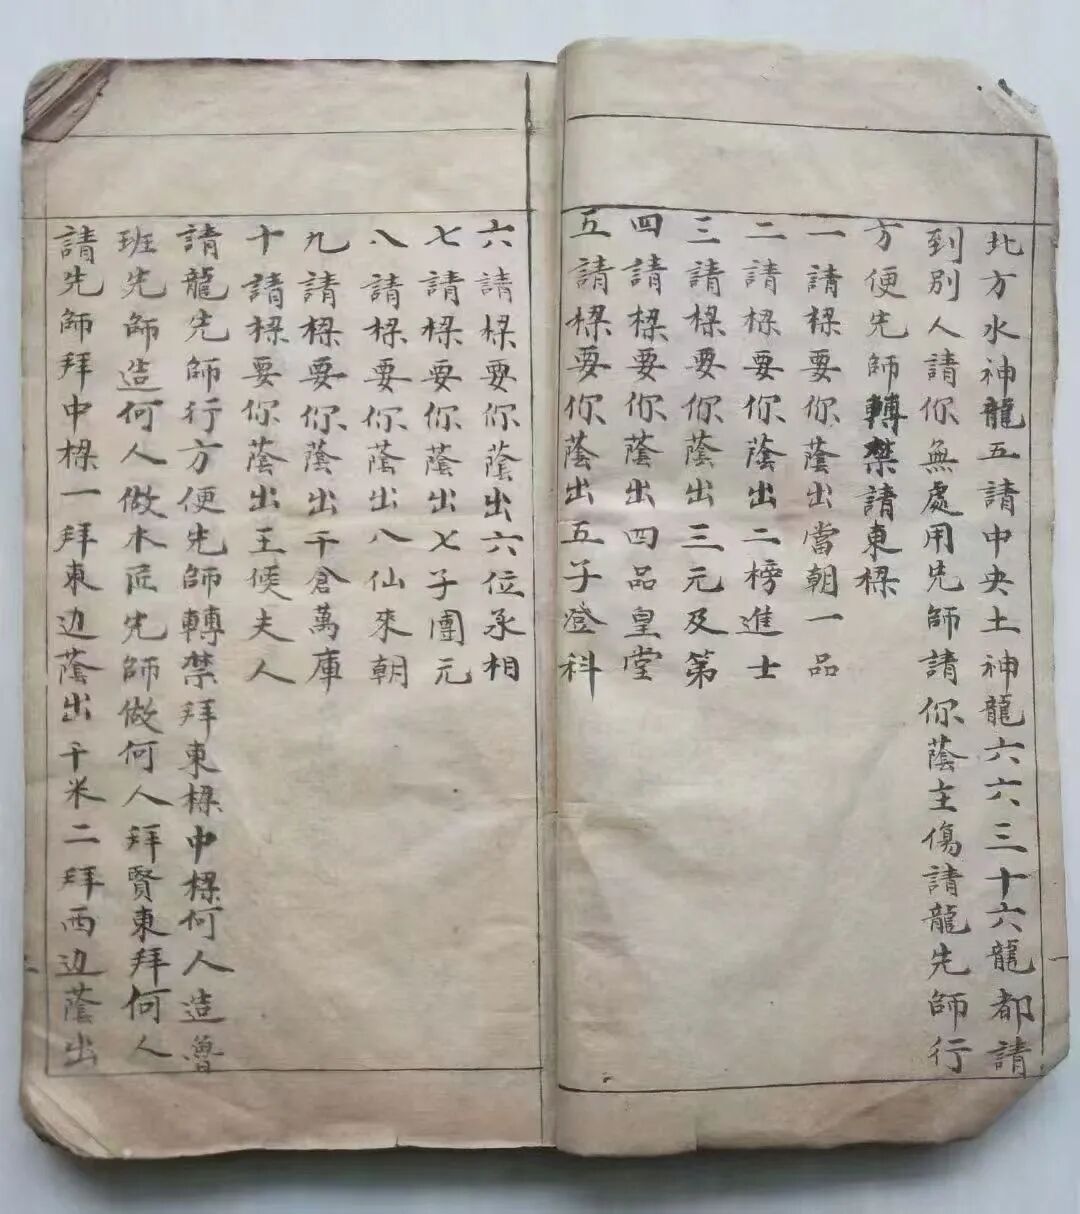 北方水神龍五請中央土神龍六六三十六龍都請
到別人請你無處用先師請你蔭主傷請龍先師行
方便先師轉禁請東樑
一請樑要你蔭出當朝一品
二請樑要你蔭出二榜進士
三請樑要你蔭出三元及第
四請樑要你蔭出四品皇堂
五請樑要你蔭出五子登科
六請樑要你蔭出六位丞相
七請樑要你蔭出七子團元
八請樑你蔭出八仙來朝
九請樑要你蔭出千倉萬庫
十請樑要你蔭出王候夫人
請龍先師行方便先師轉禁拜東樑中樑何人造魯
班先師造何人做木匠先師做何人拜賢東拜何人
請先師拜中樑一拜東边蔭出千米二拜西边蔭出